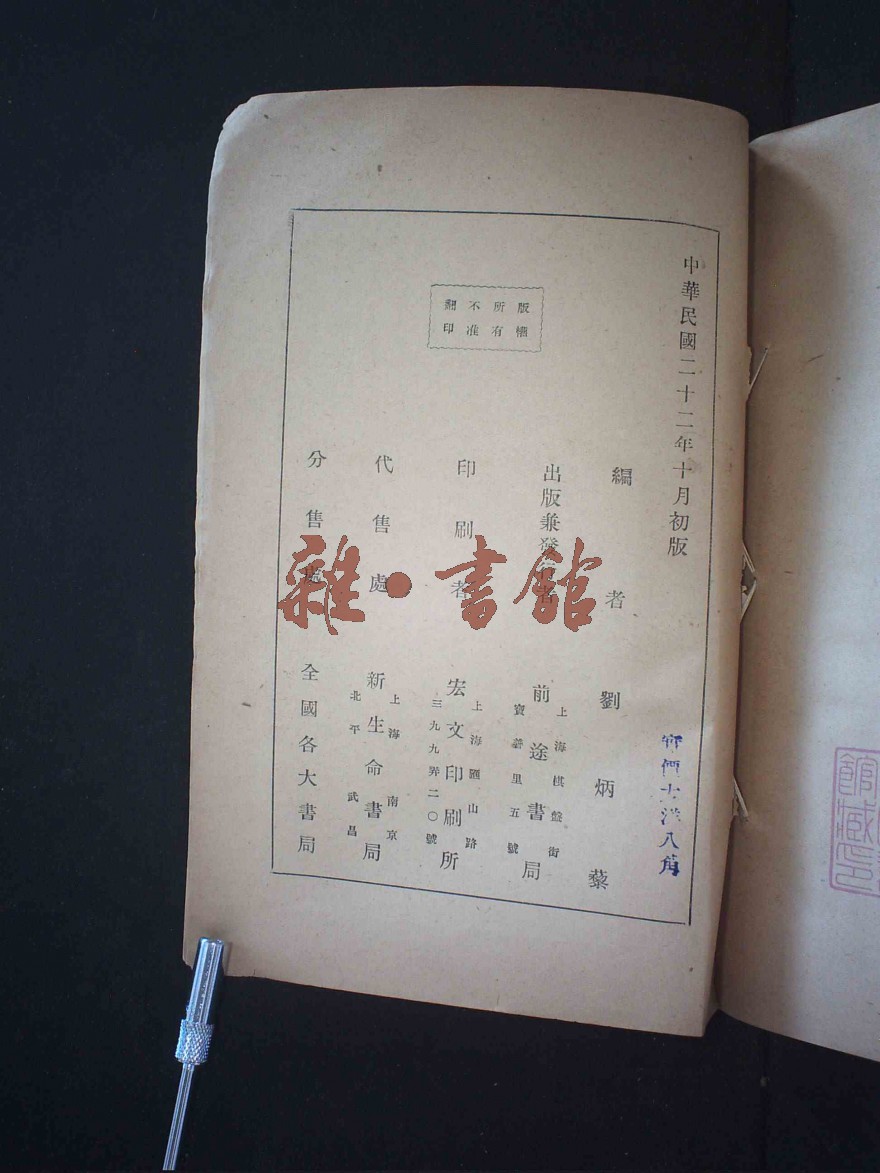 中華民國二十二年十月初版
實價大洋八角
編者 劉炳藜
出版兼發行者 前途書局
上海棋盤街
寶善里五號
印刷者 宏文印刷所
上海匯山路
三九九弄二〇號
代售處 新生命書局
上海 南京
北平 武昌
分售處 全國各大書局
版權
所有
不准
翻印
雜·書館
館藏印